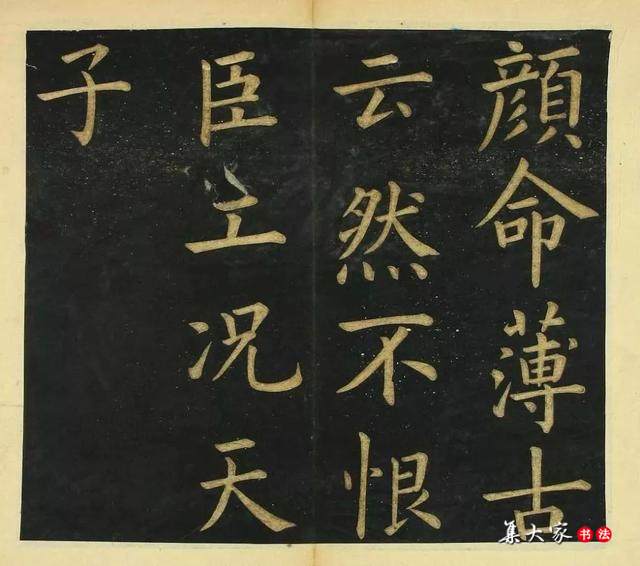 顔命薄古
云然不恨
臣工况天
子
集大家书法